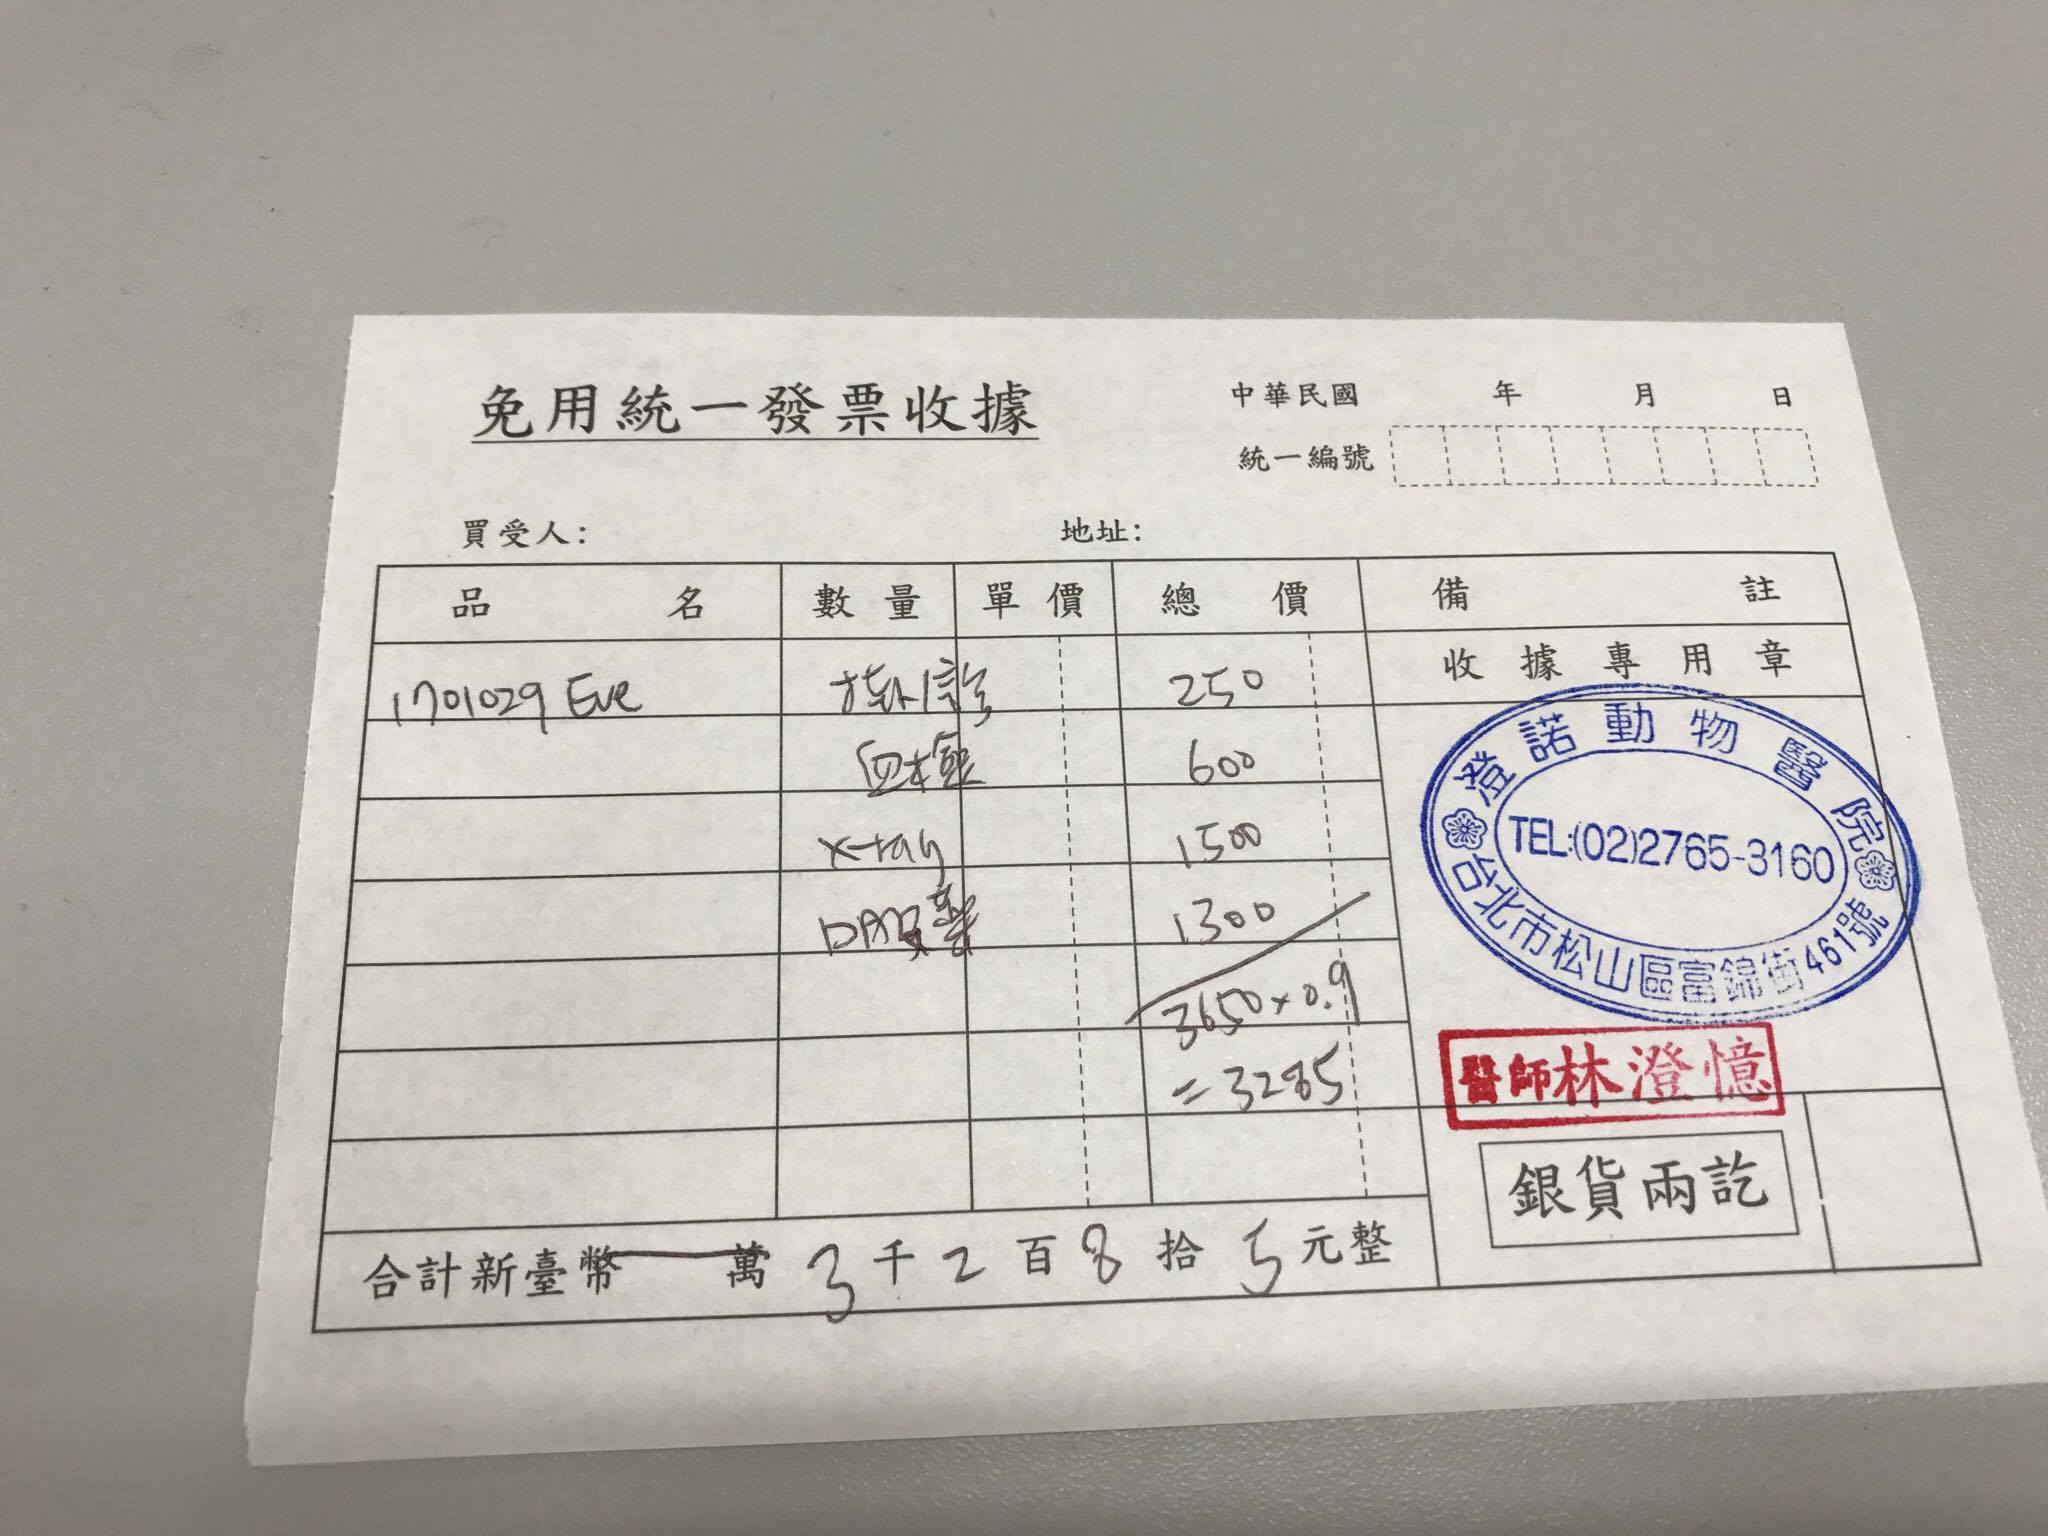 免用統一發票收據
中華民國 年 月 日
統一編號
買受人: 地址:
品名 數量 單價 總價 備註
收據專用章
1701029 Eve 掛診 250
血檢 600
X-ray 1500
1300
3650×0.9
=3285
澄諾動物醫院
TEL:(02)2765-3160
台北市松山區富錦街461號
醫師林澄憶
銀貨兩訖
合計新臺幣 萬 3 千 2 百 8 拾 5 元整